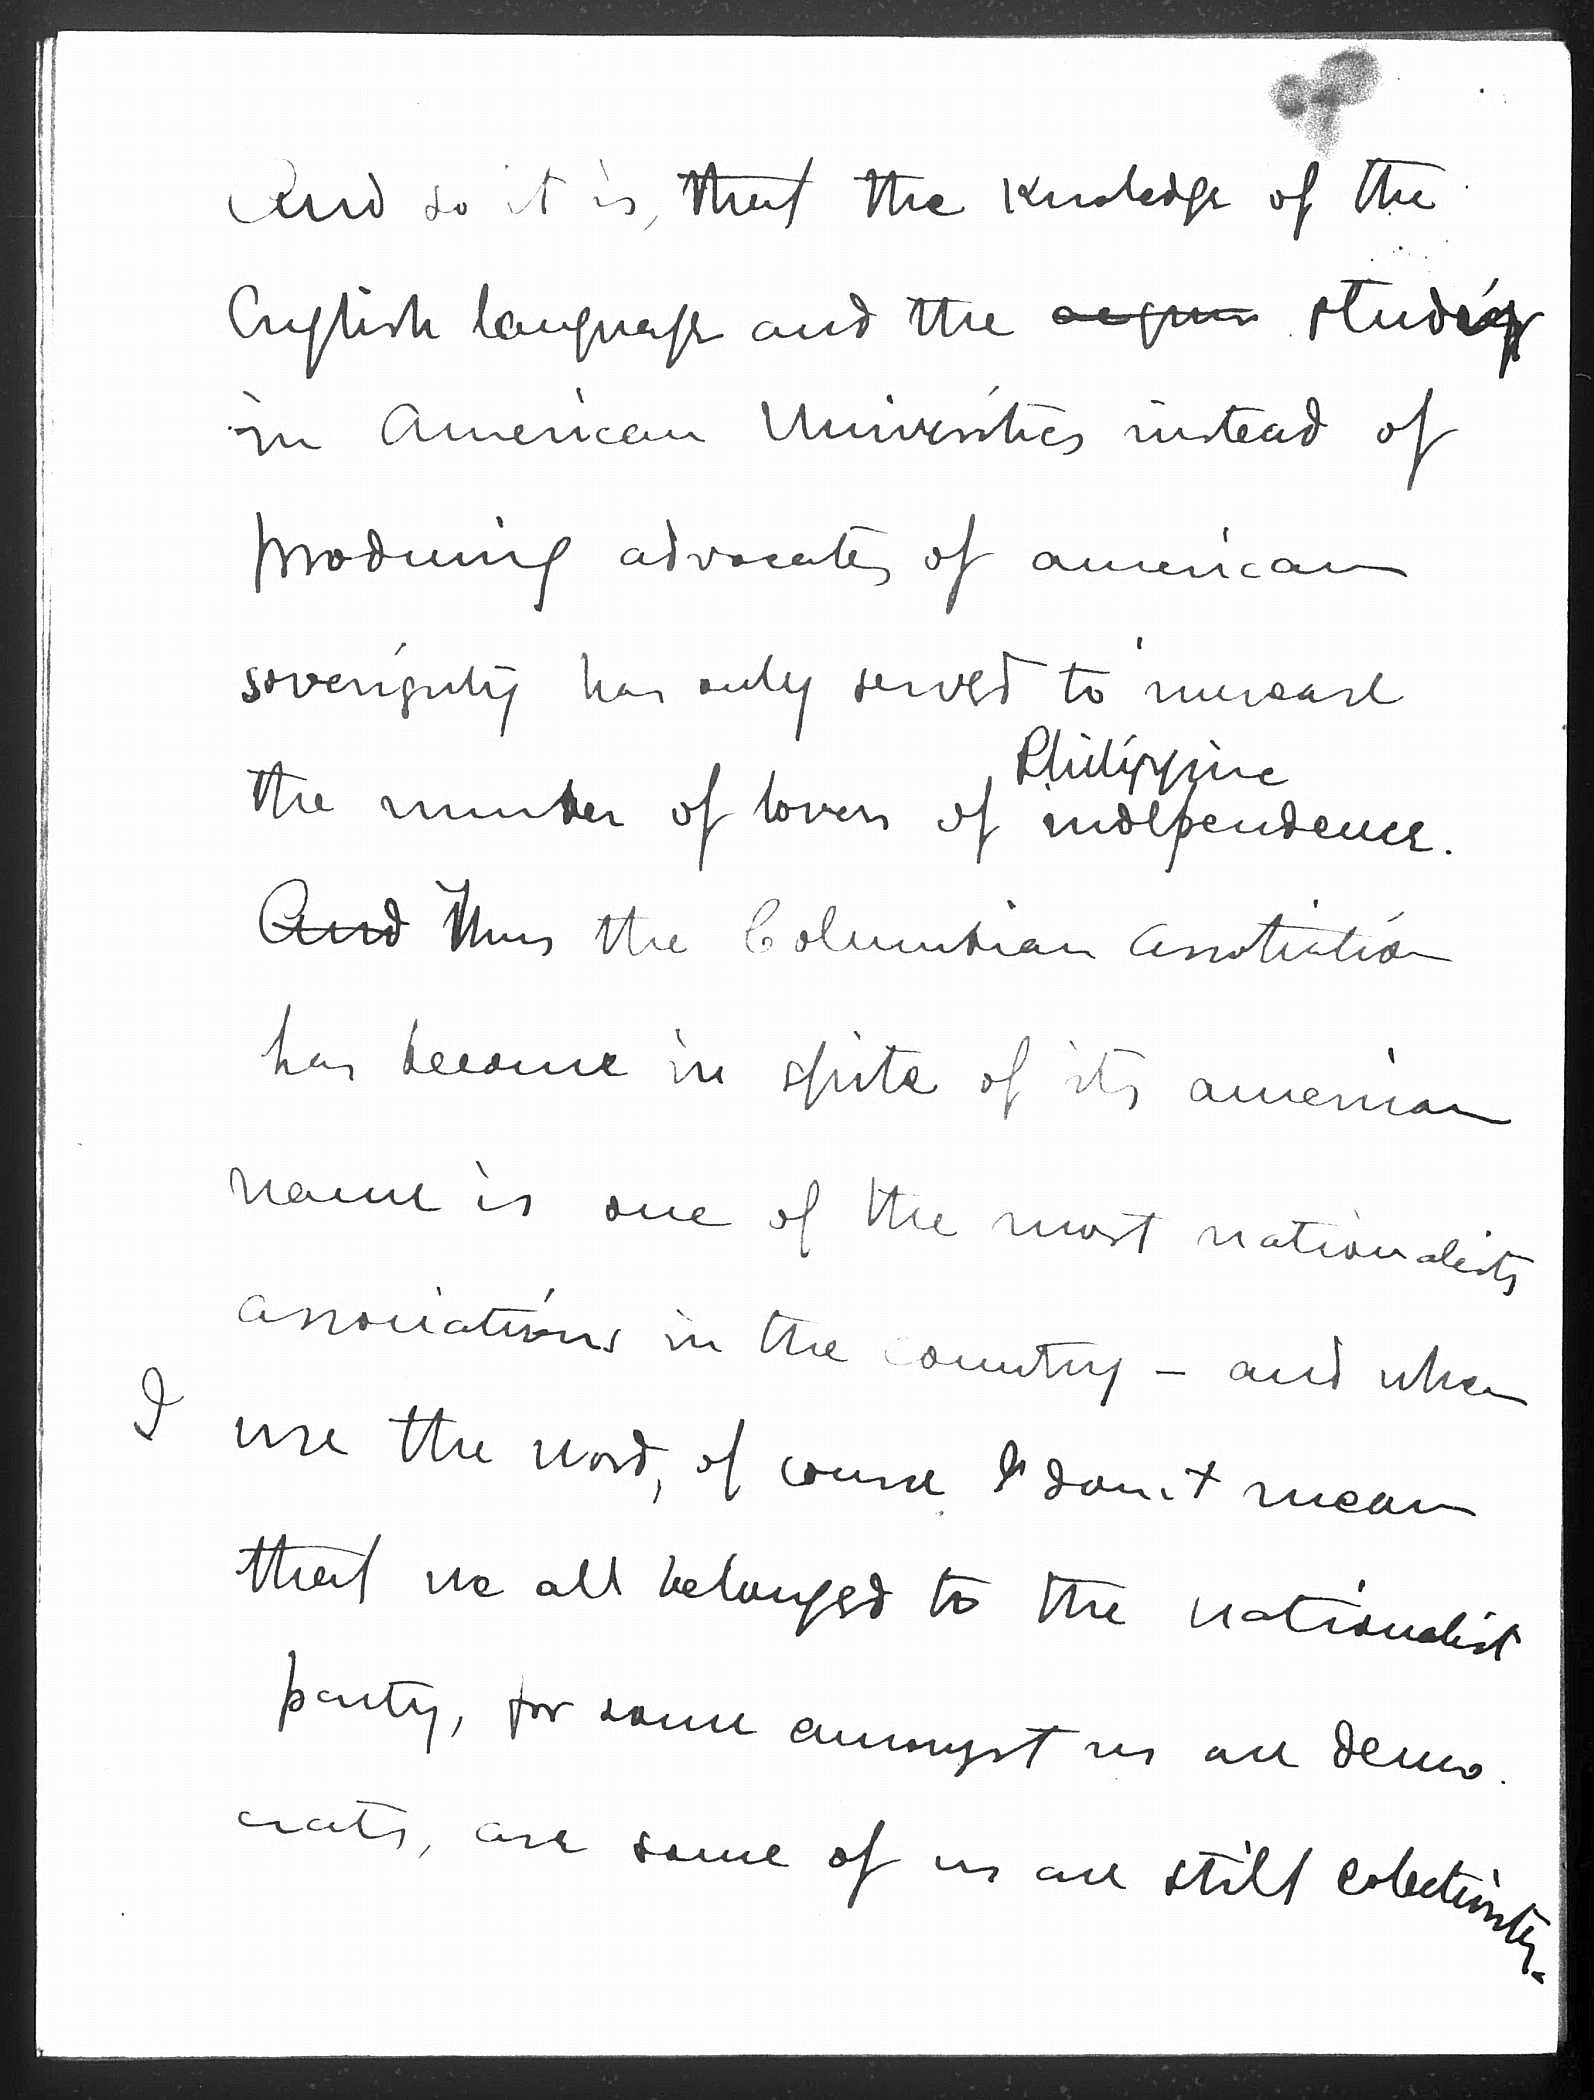 And so it is, that the knoledge of the
English language and the acquir studies
in American Universities instead of
producing advocates of american
soverignty has only served to increase
Philippine
the number of lovers of independence.
And Thus the Columbian Assotiation
has become in spite of its american
name is one of the most nationalists
associations in the country - and when
I use the word, of course I don't mean
that we all belonged to the nationalist
party, for some amongst us are demo
crats, are some of us are still colectivists.